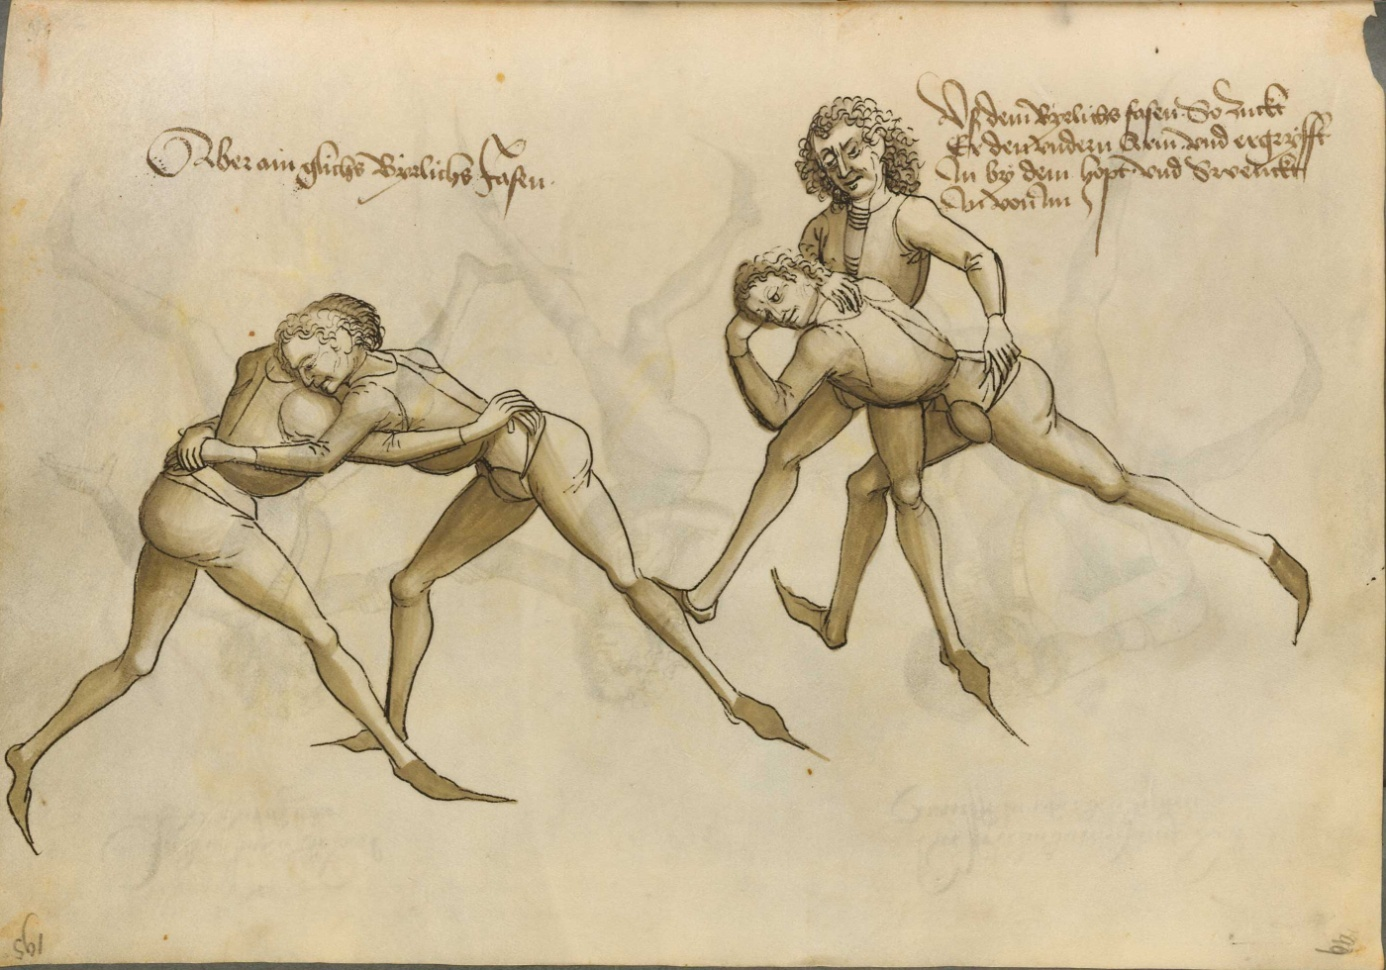 Aber ain glichs Bÿrlichs fasen
Vß dem Bÿrlichs fasen So zuckt
Er den andern Arm vnd ergrÿfft
In bÿ dem hopt vnd Swenckt
In von Im
195